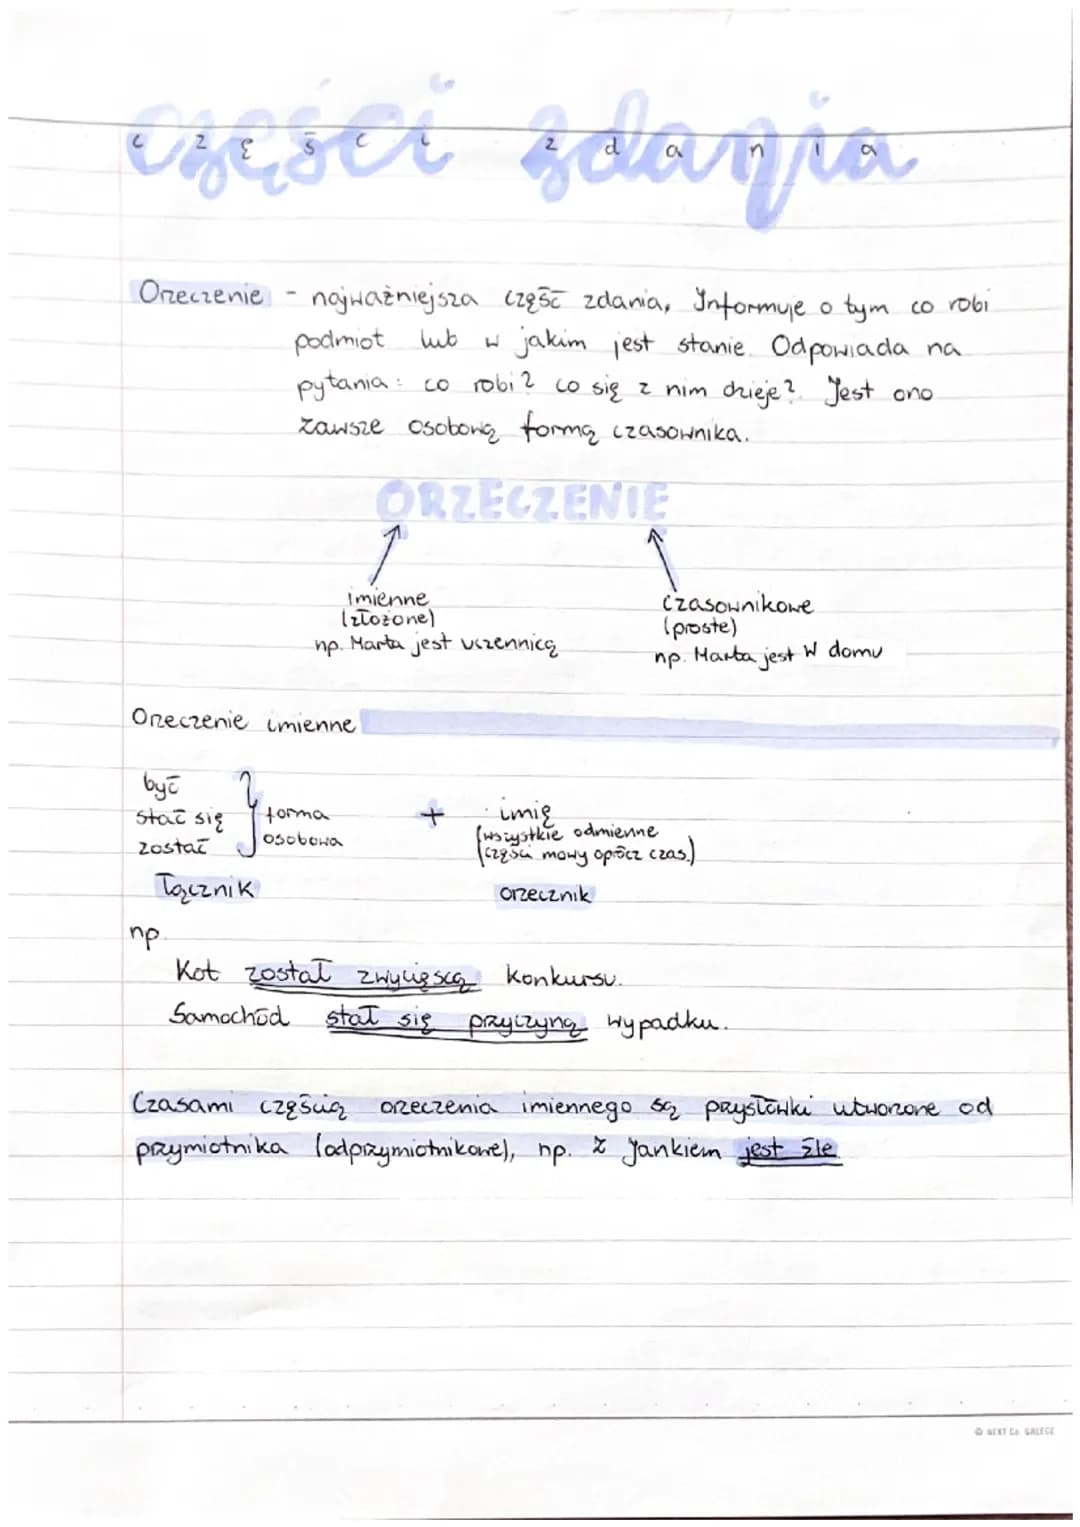 części zdania
c z ę ś c i z d a n i a
Orzeczenie - najważniejsza część zdania, Informuje o tym co robi
podmiot lub w jakim jest stanie. Odpowiada na
pytania: co robi? co się z nim dzieje? Jest ono
zawsze osobową formą czasownika.
ORZECZENIE
imienne
(złożone)
np. Marta jest uczennicą
czasownikowe
(proste)
np. Marta jest w domu
Orzeczenie imienne
być
stać się
zostać
forma
osobowa
+
imię
(wszystkie odmienne
części mowy oprócz czas.)
łącznik
orzecznik
np.
Kot został zwycięscą konkursu.
Samochód stał się przyczyną wypadku.
Czasami częścią orzeczenia imiennego są przysłówki utworzone od
przymiotnika (odprzymiotnikowe), np. Z Jankiem jest źle.